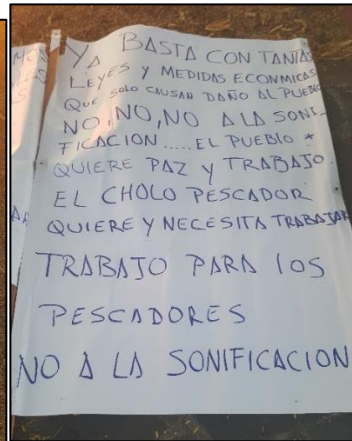 YA BASTA CON TANTAS
LEYES Y MEDIDAS ECONMICAS
QUE SOLO CAUSAN DAÑO AL PUEBLO
NO, NO, NO A LA SONI-
FICACION ..... EL PUEBLO *
QUIERE PAZ Y TRABAJO.
EL CHOLO PESCADOR
QUIERE Y NECESITA TRABAJAR
TRABAJO PARA los
PESCADORES
NO A LA SONIFICACION